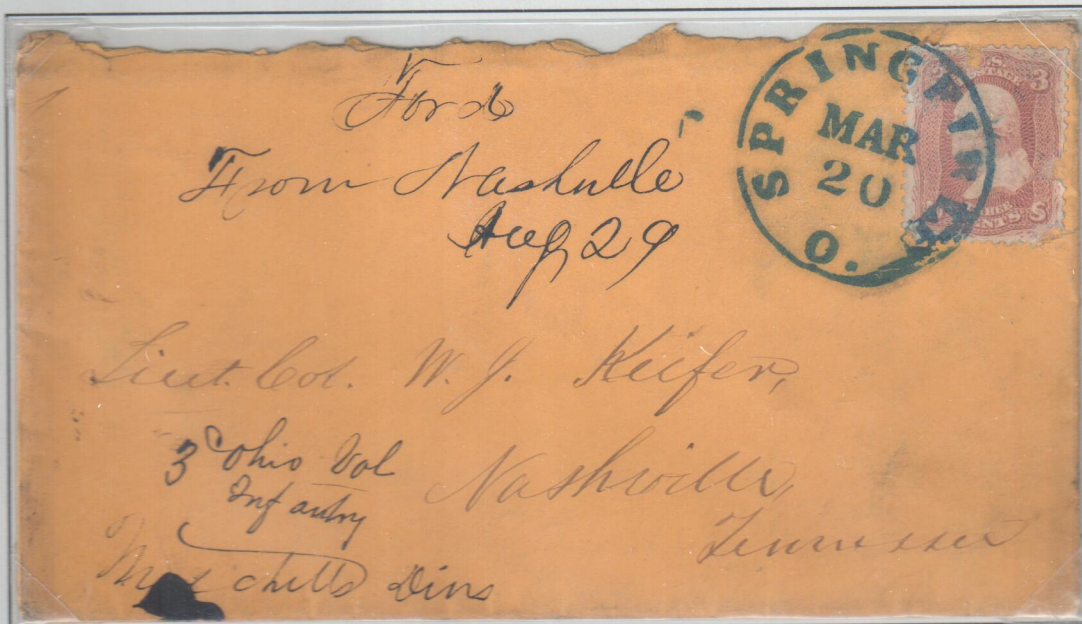 Ford
From Nashville
Aug 29
SPRINGFIELD
MAR
20
O.
U.S. POSTAGE
3
THREE CENTS
Lieut. Col. W. J. Keifer,
3d Ohio Vol
Infantry
Nashville,
Tennessee
Mitchells Divs